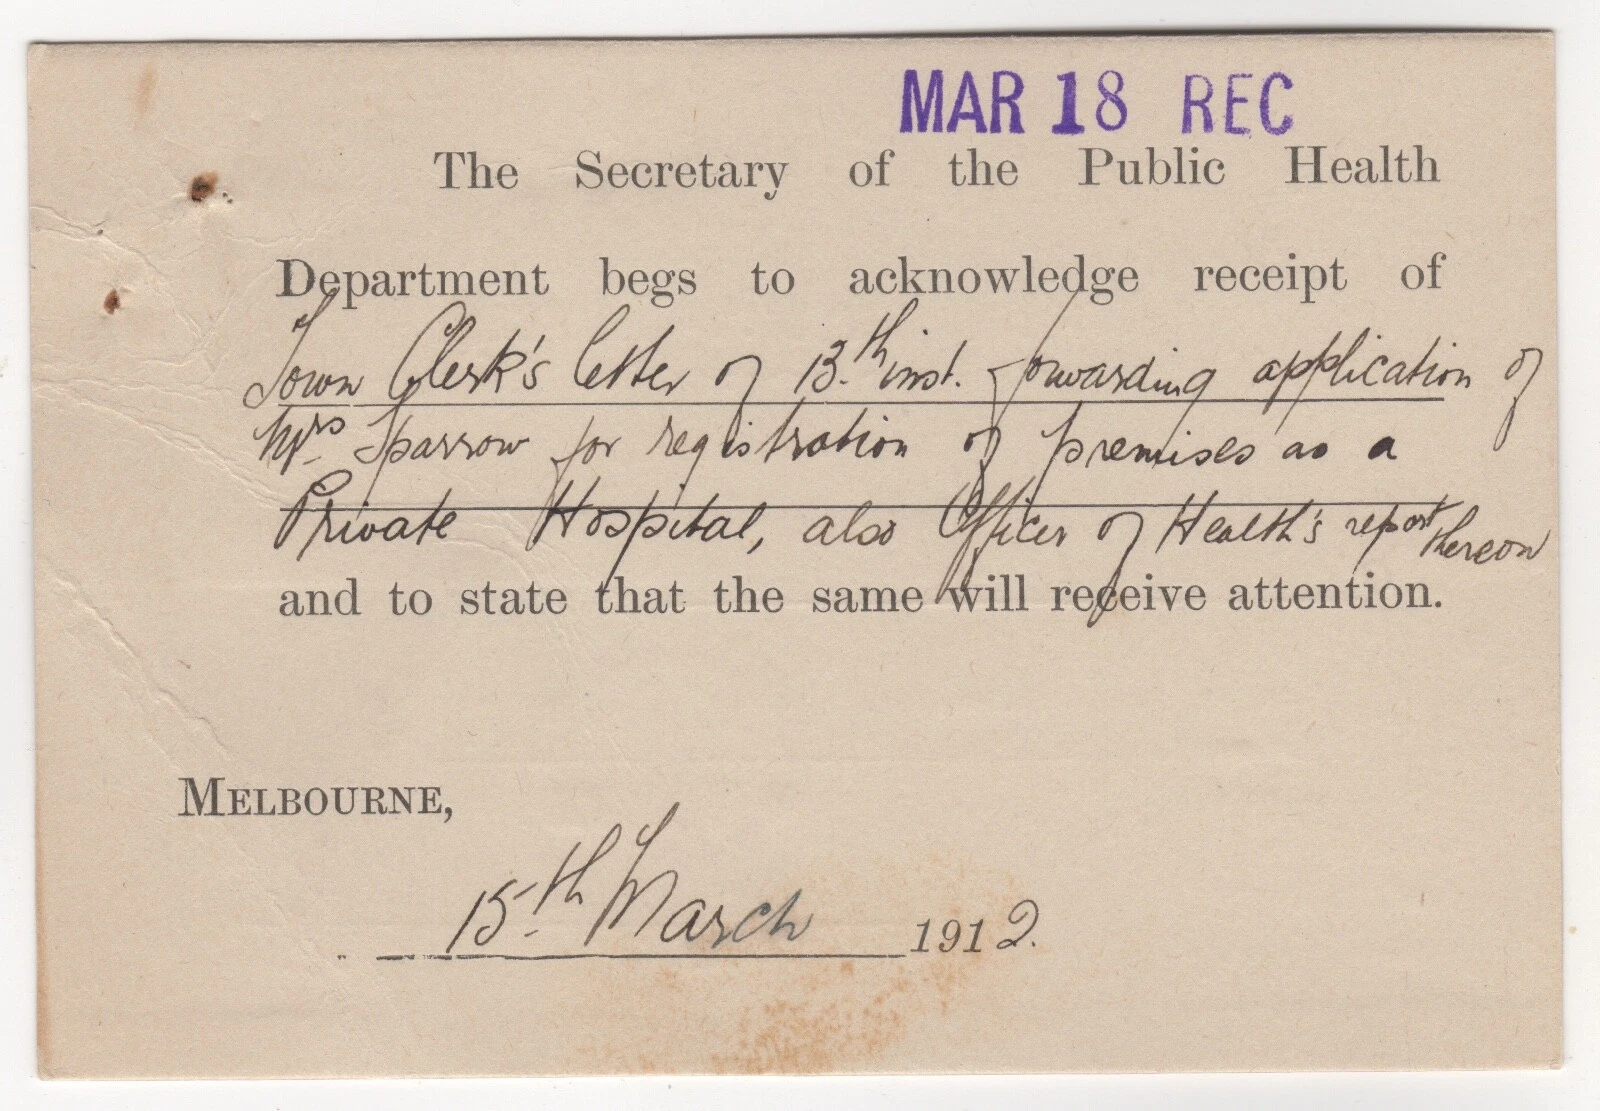 MAR 18 REC
The Secretary of the Public Health
Department begs to acknowledge receipt of
Town Clerk's letter of 13.th inst. forwarding application of
Mrs Sparrow for registration of premises as a
Private Hospital, also Officer of Health's report thereon
and to state that the same will receive attention.
MELBOURNE,
15.th March 1912.